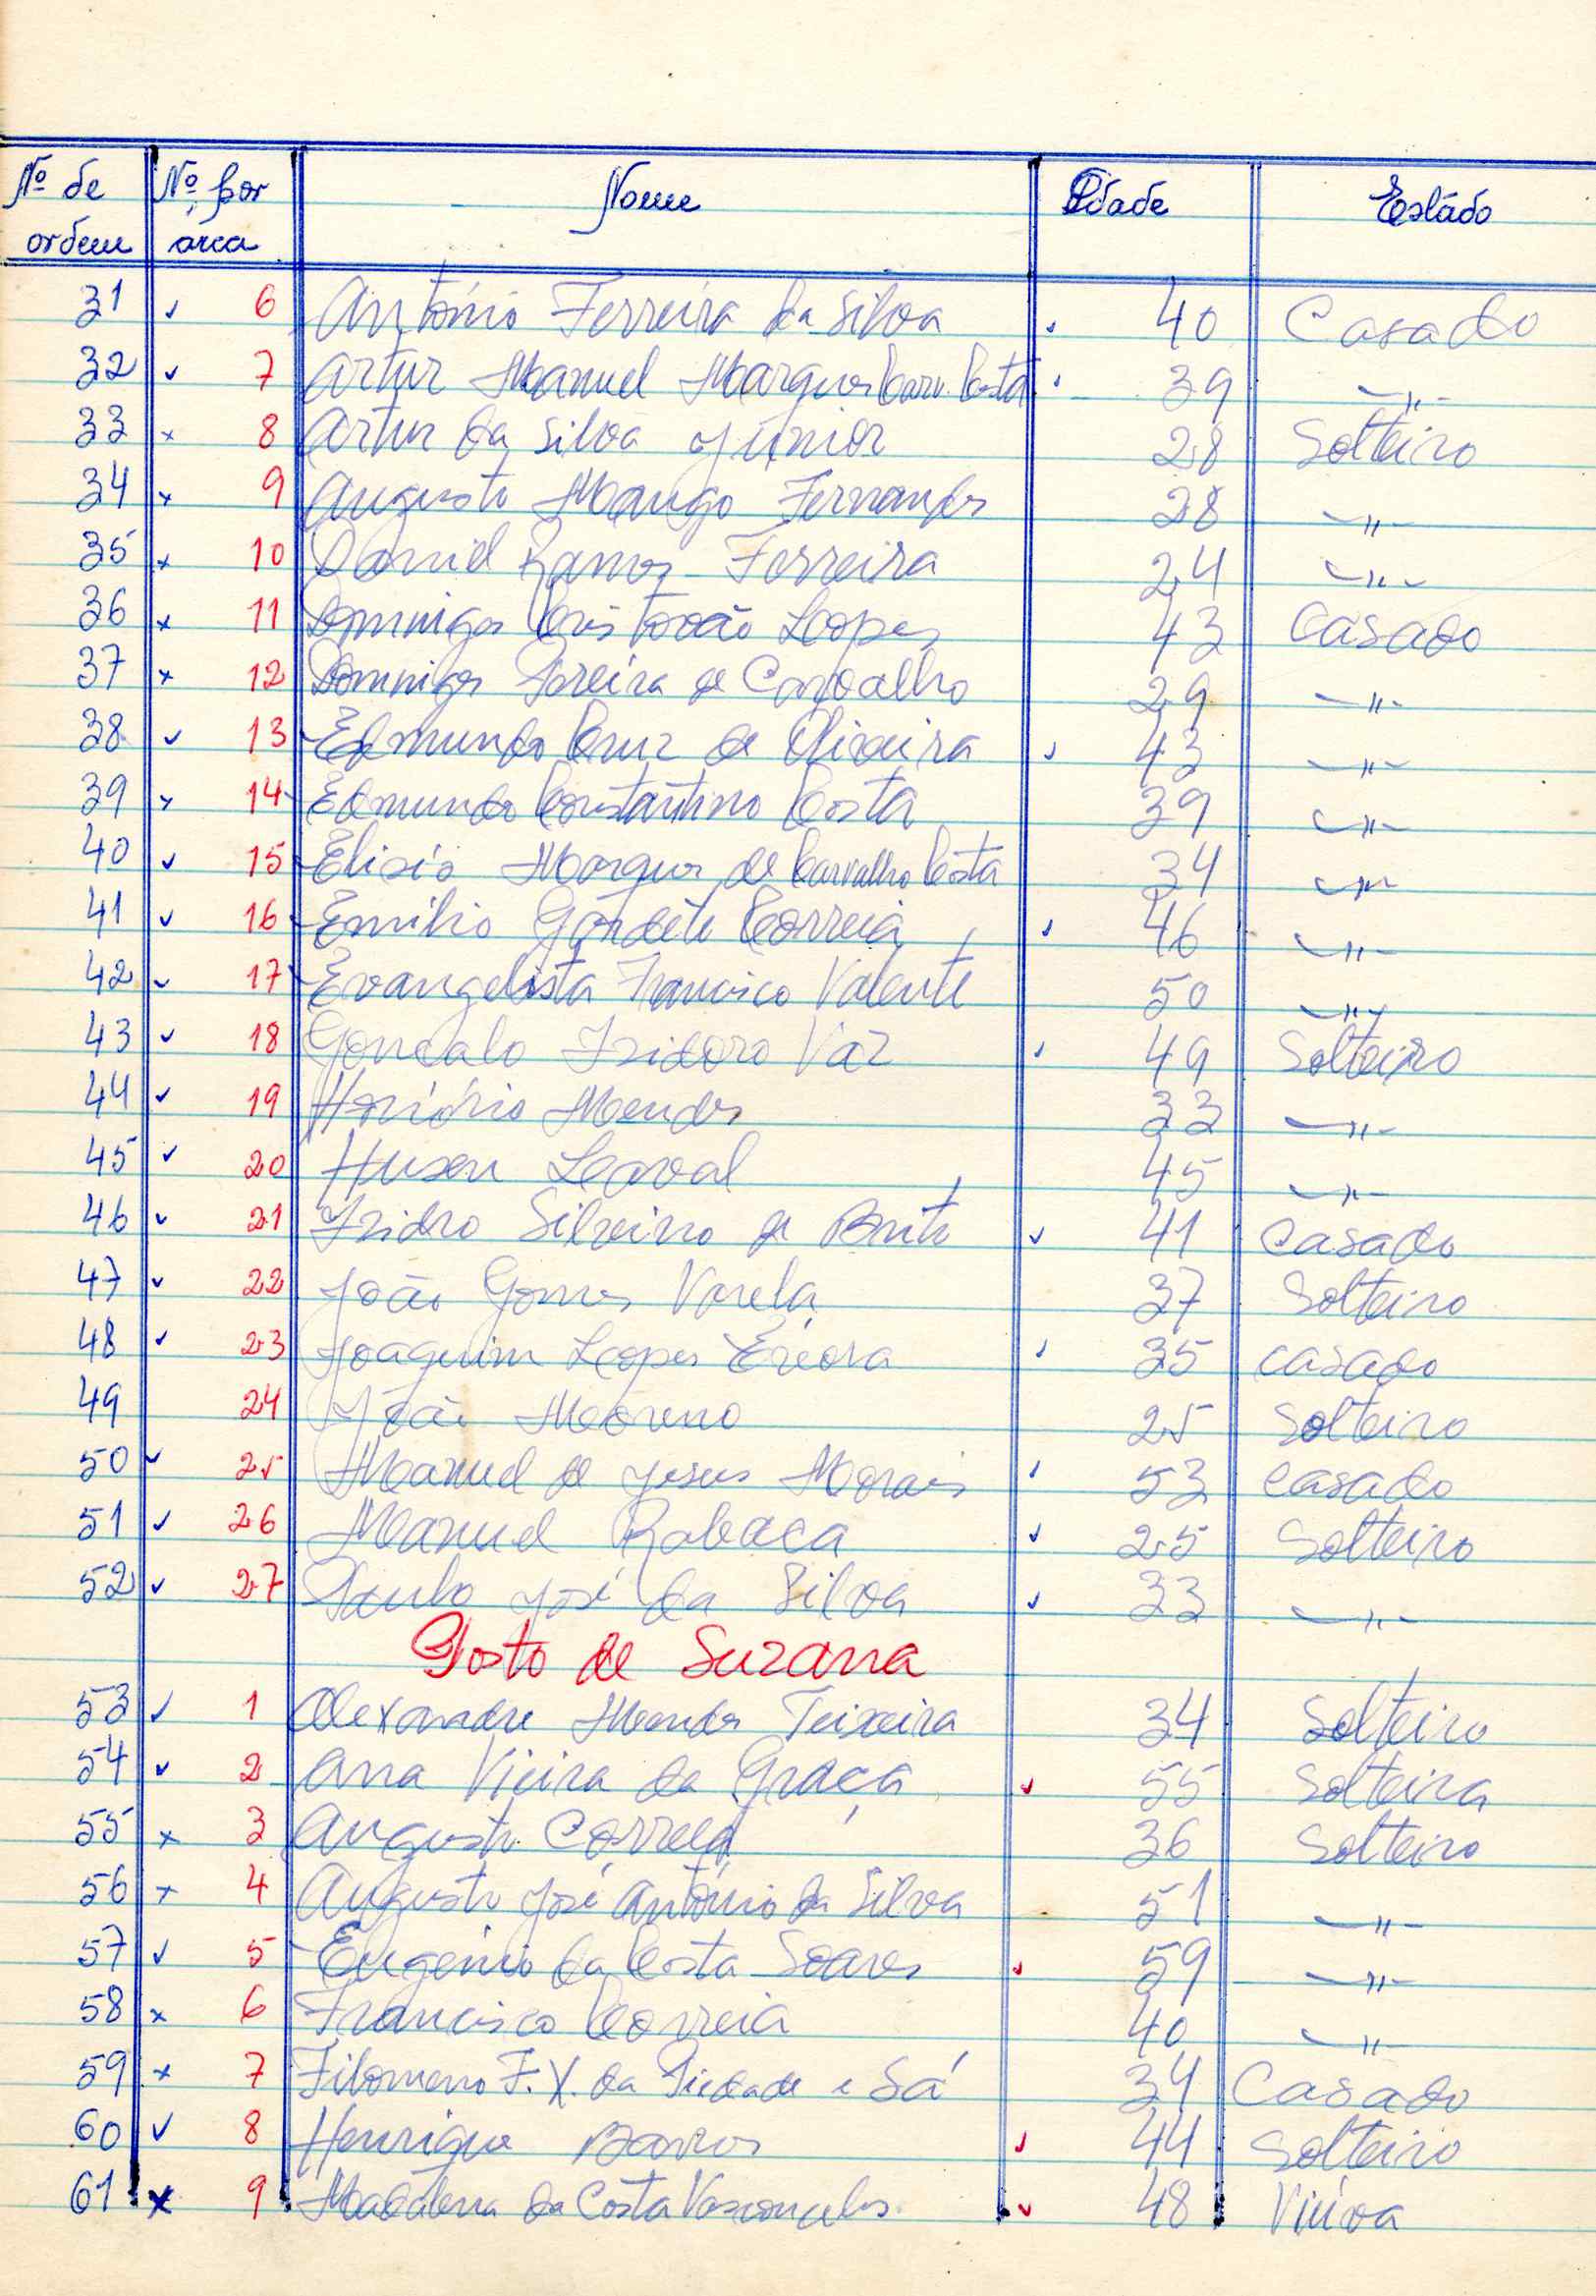 Nº de ordem Nº por área Nome Idade Estádo
31 ✓ 6 António Ferreira da Silva ✓ 40 Casado
32 ✓ 7 Artur Manuel Marques Carv. Costa ✓ 39 —"—
33 x 8 Artur da Silva Júnior 28 Solteiro
34 x 9 Augusto Mango Fernandes 28 —"—
35 x 10 Daniel Ramos Ferreira 24 —"—
36 x 11 Domingos Cristovão Lopes 43 Casado
37 x 12 Domingos Pereira de Carvalho 29 —"—
38 ✓ 13 Edmundo Cruz de Oliveira ✓ 43 —"—
39 x 14 Edmundo Constantino Costa 39 —"—
40 ✓ 15 Elisio Marques de Carvalho Costa 34 —"—
41 ✓ 16 Emilio Gardete Correia ✓ 46 —"—
42 ✓ 17 Evangelista Francisco Valente 50 —"—
43 ✓ 18 Goncalo Isidoro Vaz ✓ 49 Solteiro
44 ✓ 19 Mendes 33 —"—
45 ✓ 20 45 —"—
46 ✓ 21 Isidro Silveiro de Brito ✓ 41 Casado
47 ✓ 22 João Gomes Varela 37 Solteiro
48 ✓ 23 Joaquim Lopes Évora ✓ 35 casado
49 24 João Moreno 25 Solteiro
50 ✓ 25 Manuel de Jesus Morais ✓ 53 casado
51 ✓ 26 Manuel Rabaca ✓ 25 Solteiro
52 ✓ 27 Paulo José da Silva ✓ 33 —"—
Posto de Suzana
53 ✓ 1 Alexandre Mendes Teixeira 34 Solteiro
54 ✓ 2 Ana Vieira da Graça ✓ 55 Solteira
55 x 3 Augusto Correia 36 Solteiro
56 x 4 Augusto José António da Silva 51 —"—
57 ✓ 5 Eugénio da Costa Soares ✓ 59 —"—
58 x 6 Francisco Correia 40 —"—
59 x 7 Filomeno F. X. da Piedade e Sá 34 Casado
60 ✓ 8 Henrique Barros ✓ 44 Solteiro
61 x 9 Madalena da Costa Vasconcelos ✓ 48 Viúva